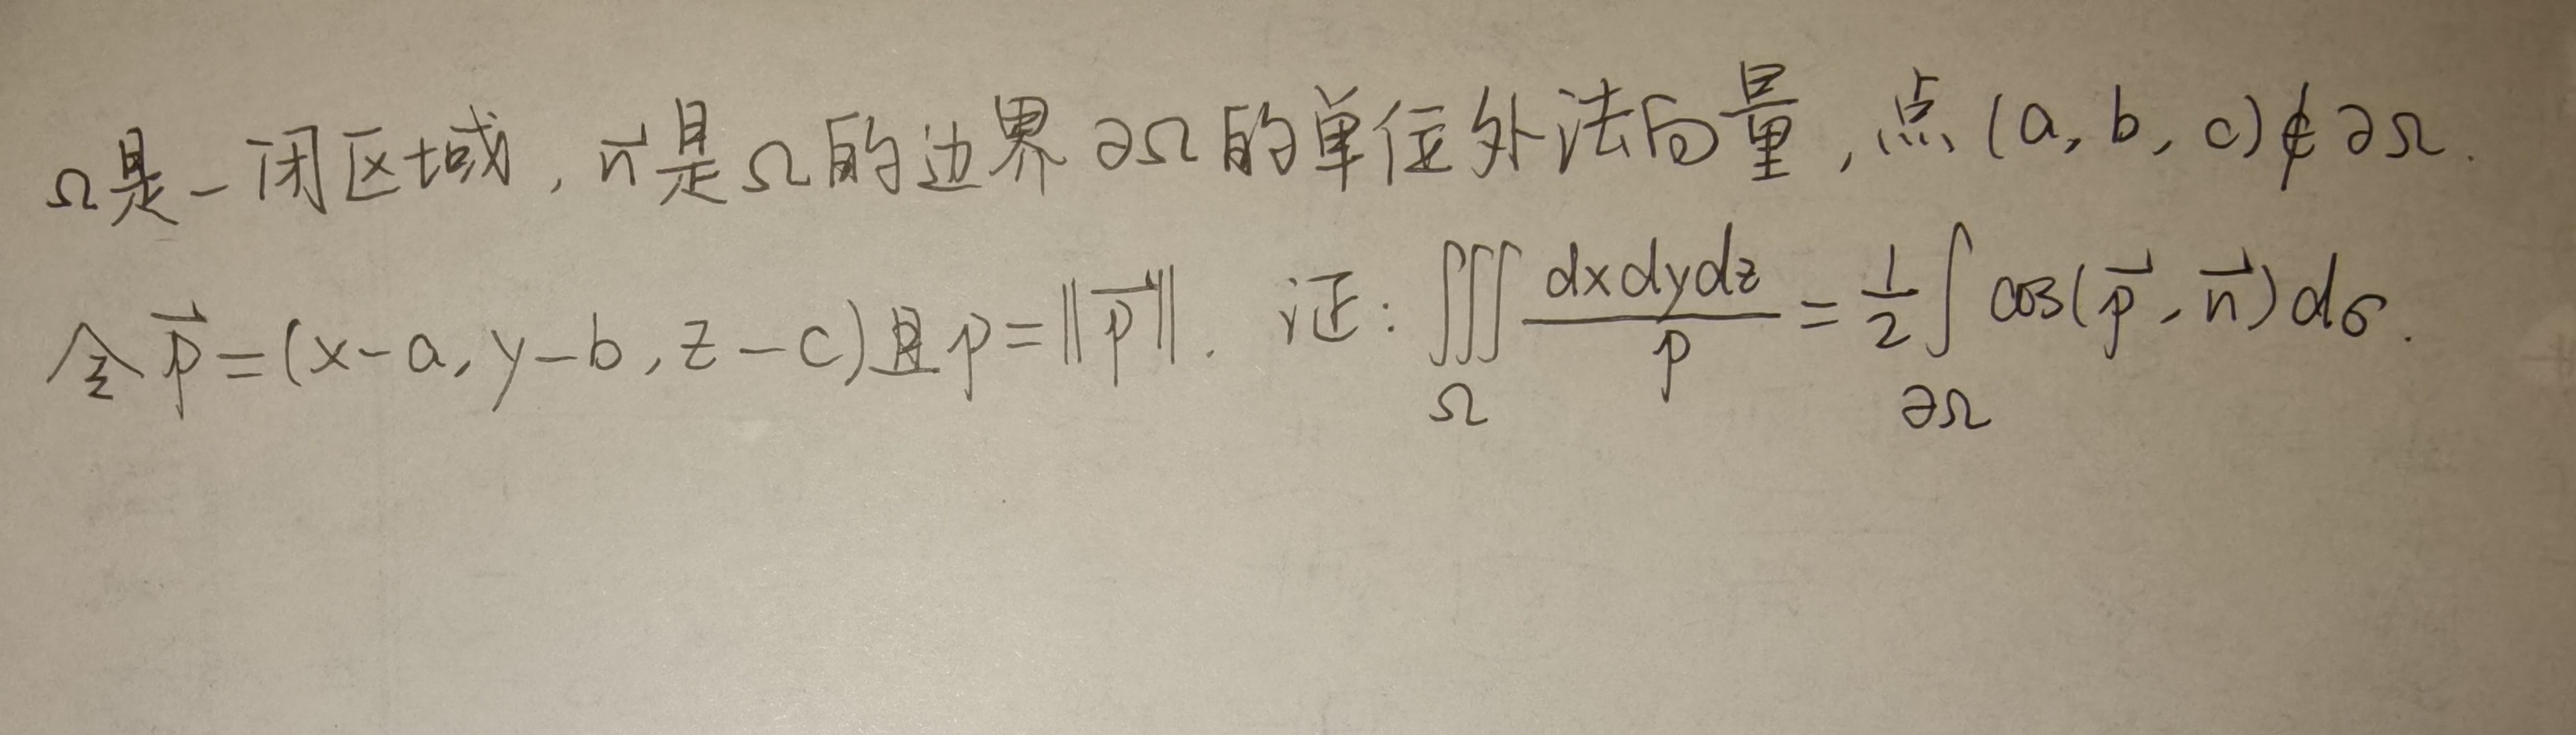 Ω是一闭区域，n⃗是Ω的边界∂Ω的单位外法向量，点(a, b, c)∉∂Ω.
令p⃗=(x-a, y-b, z-c)且p=‖p⃗‖. 证: ∭_Ω dxdydz/p = 1/2 ∫_∂Ω cos(p⃗, n⃗)dσ.